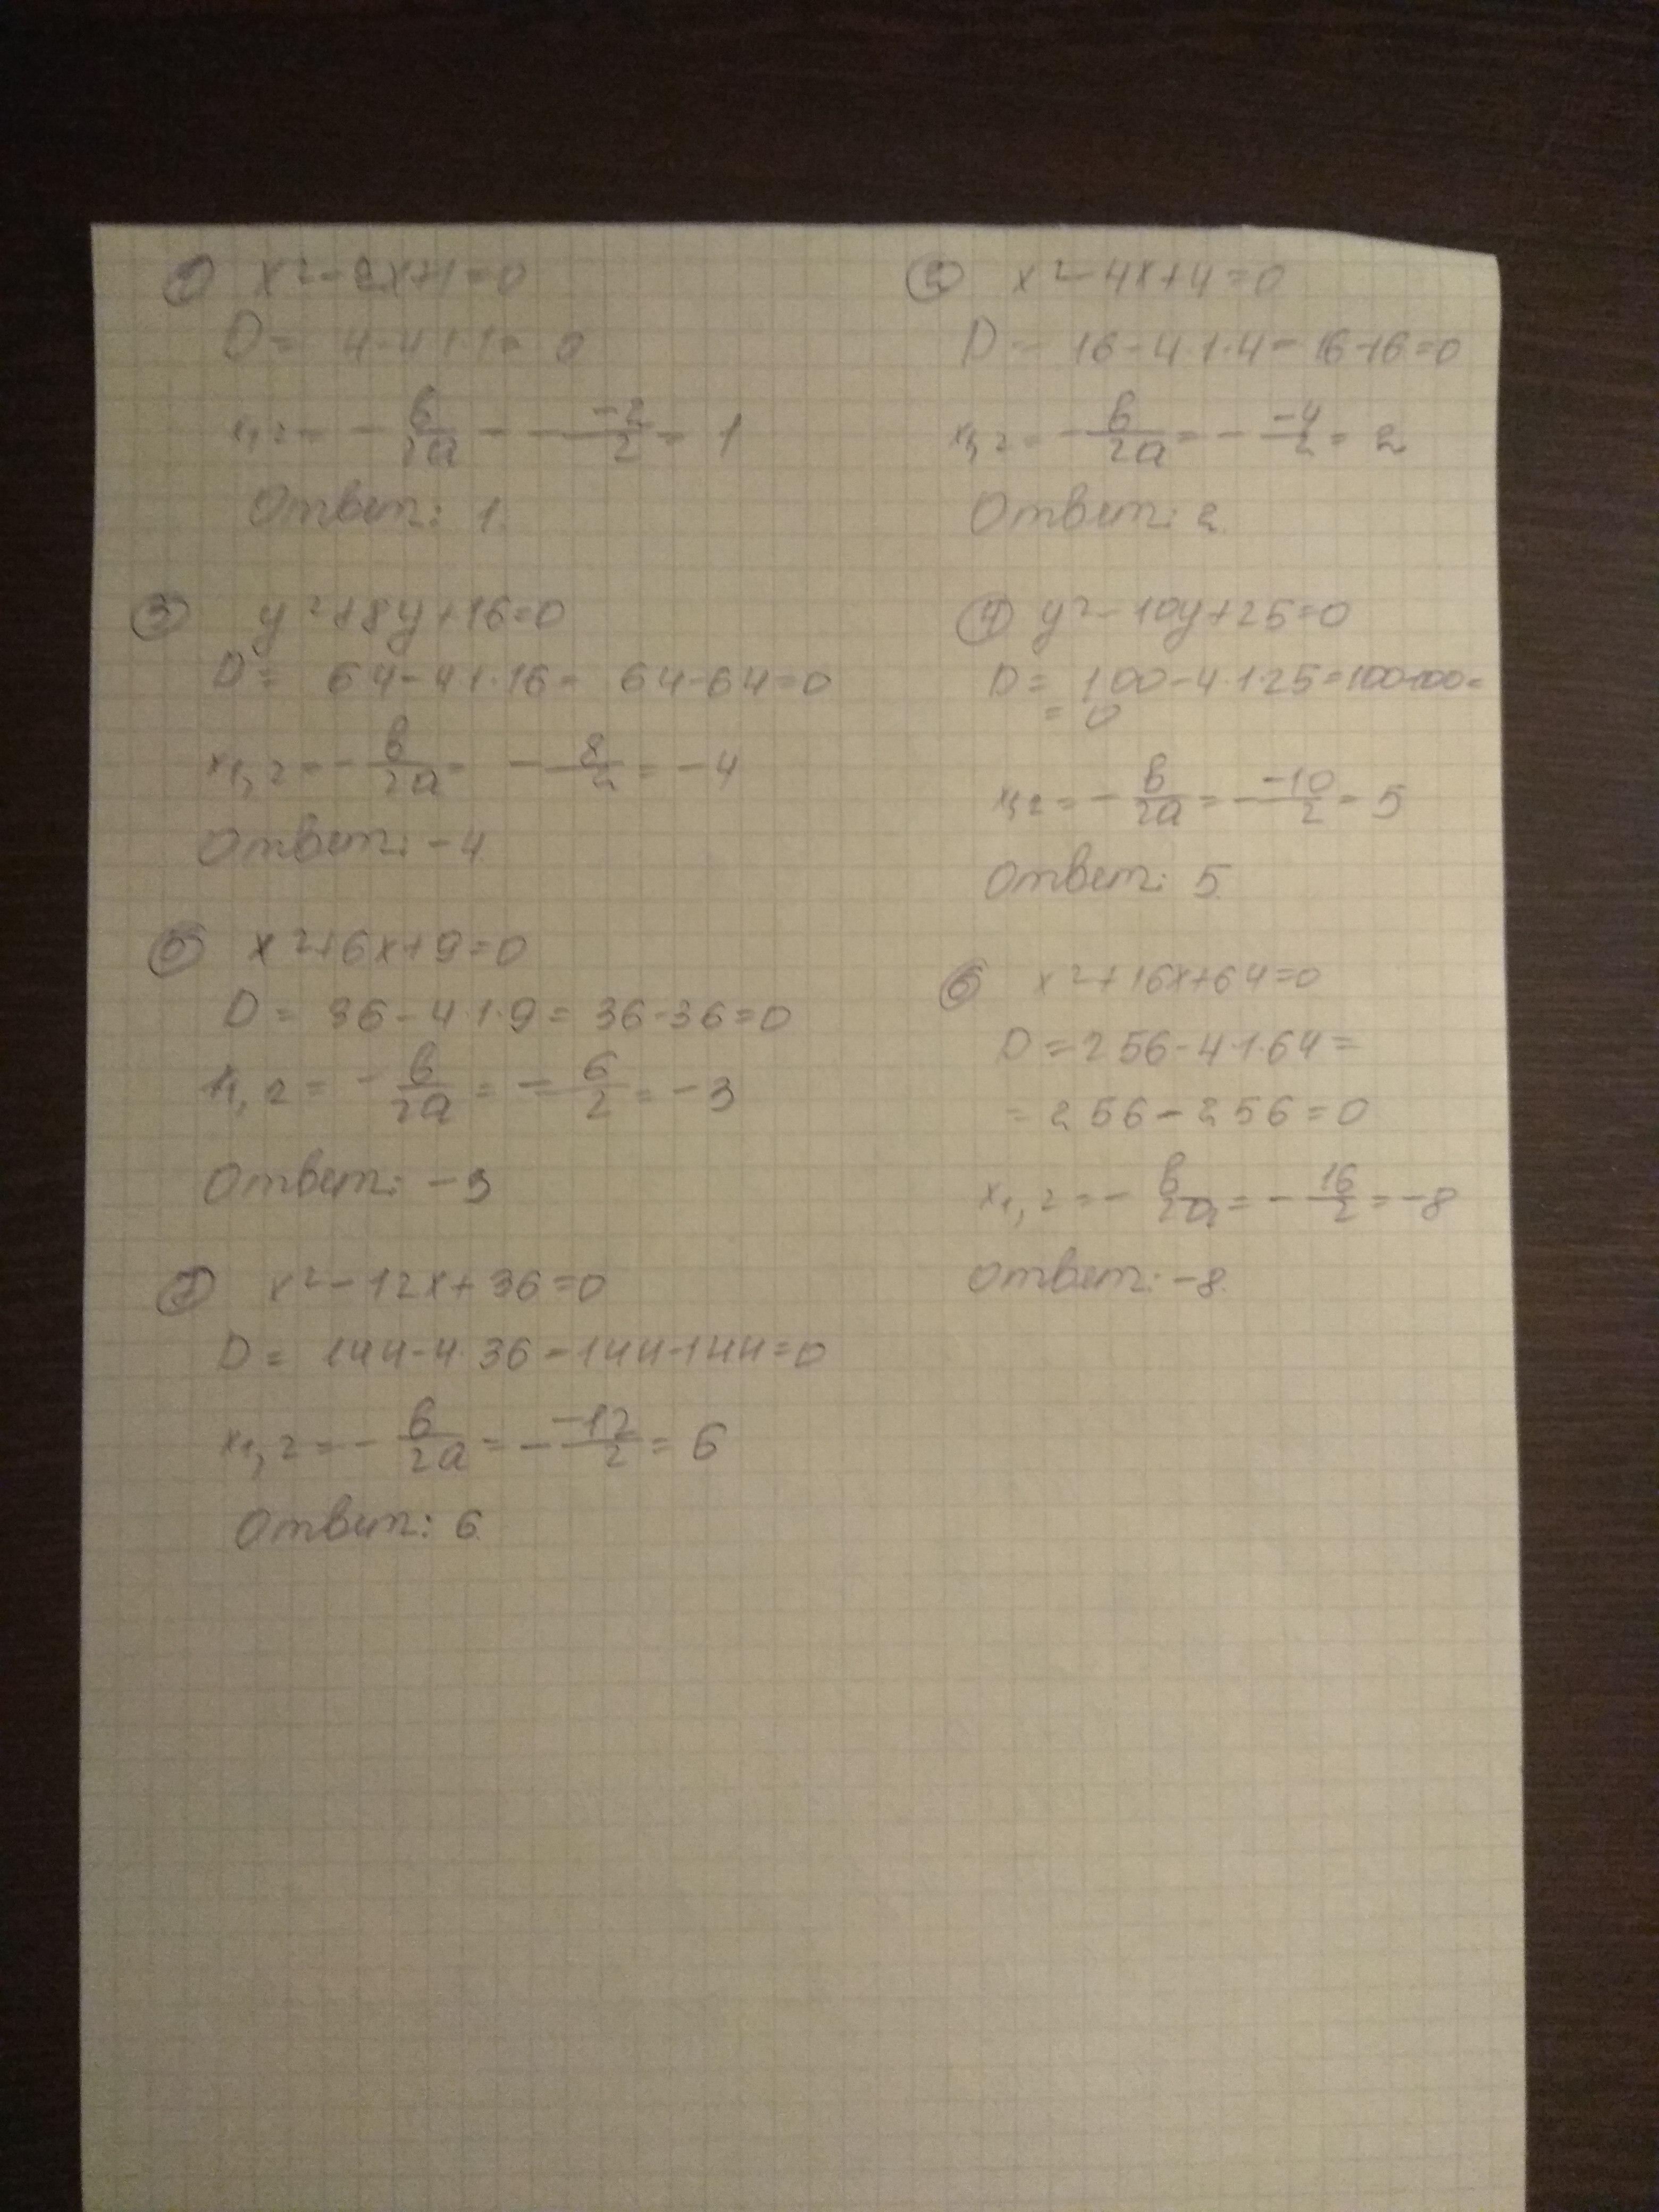 ① x² - 2x+1=0
D = 4-4·1·1= 0
x₁,₂ = - в/2a = - -2/2 = 1
Ответ: 1.
② x² - 4x+4=0
D = 16-4·1·4=16-16=0
x₁,₂ = - в/2a = - -4/2 = 2
Ответ: 2.
③ y²+8y+16=0
D = 64-4·1·16= 64-64=0
x₁,₂ = - в/2a = - 8/2 = -4
Ответ: -4
④ y²-10y+25=0
D = 100-4·1·25=100-100=
= 0
x₁,₂ = - в/2a = - -10/2 = 5
Ответ: 5.
⑤ x²+6x+9=0
D = 36-4·1·9= 36-36=0
x₁,₂ = - в/2a = - 6/2 = -3
Ответ: -3
⑥ x²+16x+64=0
D = 256-4·1·64=
= 256-256=0
x₁,₂ = - в/2a = - 16/2 = -8
Ответ: -8.
⑦ x²-12x+36=0
D = 144-4·36=144-144=0
x₁,₂ = - в/2a = - -12/2 = 6
Ответ: 6.